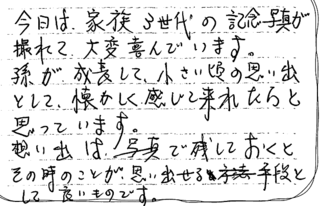 今日は、家族3世代の記念写真が
撮れて、大変喜んでいます。
孫が成長して、小さい頃の思い出
として、懐かしく感じて来れたらと
思っています。
想い出は、写真で残しておくと、
その時のことが思い出せる手段と
して良いものです。